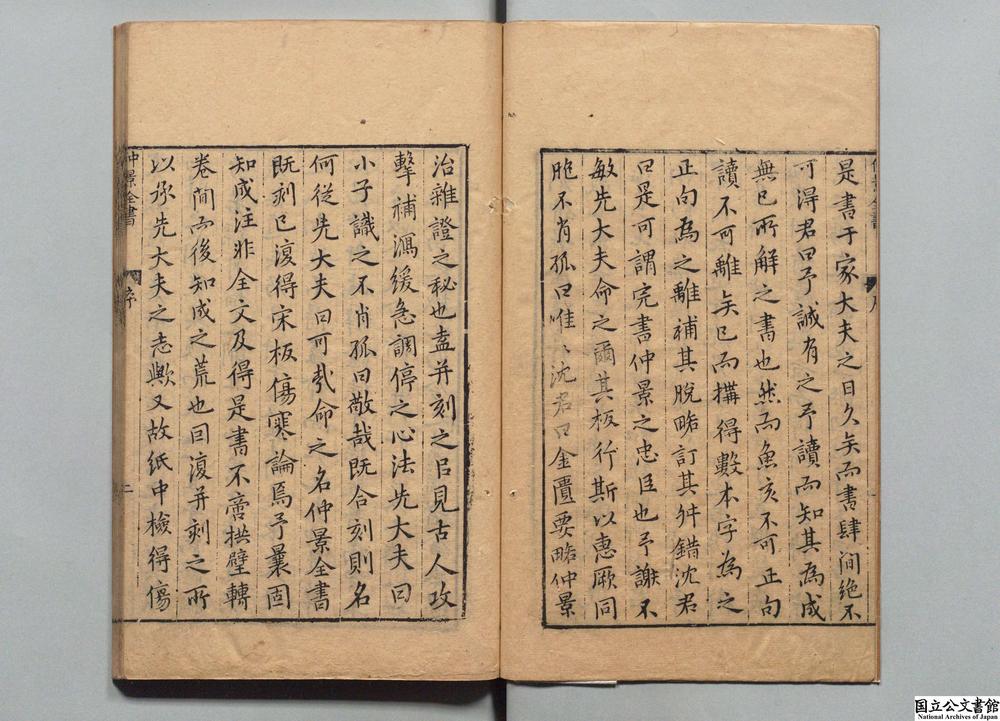 是書于家大夫之日久矣而書肆間絶不
可得君曰予誠有之予讀而知其為成
無已所解之書也然而魚亥不可正句
讀不可離矣已而搆得數本字為之
正句為之離補其脫畧訂其舛錯沈君
曰是可謂完書仲景之忠臣也予謝不
敏先大夫命之爾其板行斯以惠厥同
胞不肖孤曰唯〻沈君曰金匱要畧仲景
治雜證之秘也盍并刻之以見古人攻
擊補瀉緩急調停之心法先大夫曰
小子識之不肖孤曰敬哉既合刻則名
何從先大夫曰可哉命之名仲景全書
既刻已復得宋板傷寒論焉予曩固
知成注非全文及得是書不啻拱璧轉
卷間而後知成之荒也因復并刻之所
以承先大夫之志歟又故紙中檢得傷
仲景全書
序
二
国立公文書館
National Archives of Japan